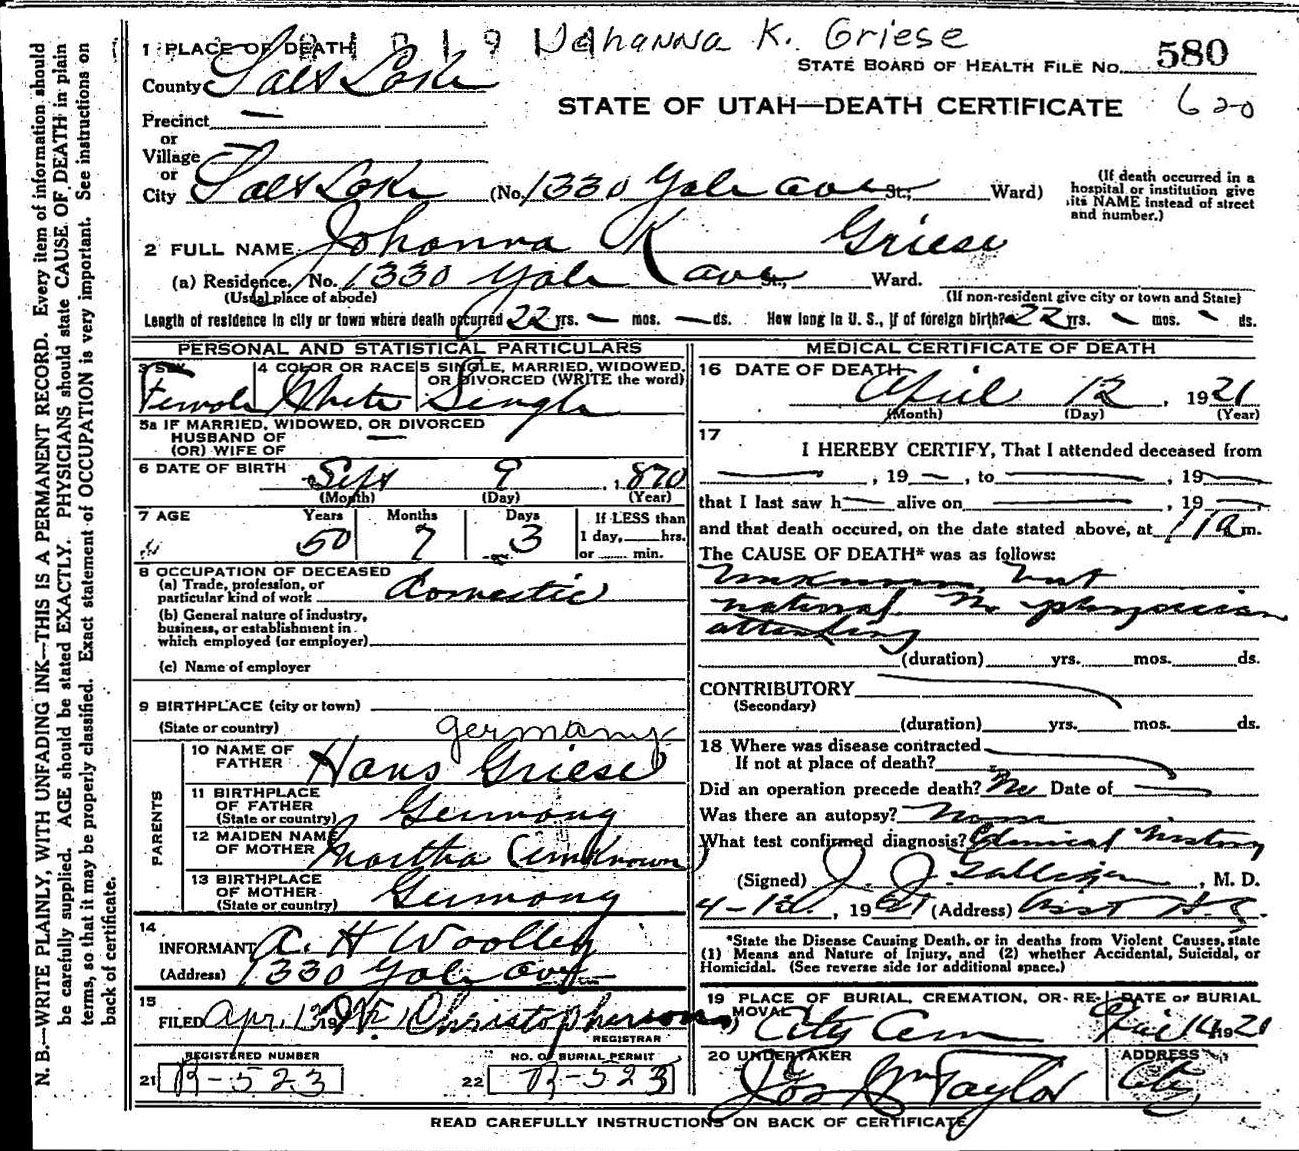 Johanna K. Griese
1 PLACE OF DEATH
STATE BOARD OF HEALTH FILE No. 580
County Salt Lake
STATE OF UTAH—DEATH CERTIFICATE 620
Precinct —
or
Village —
or
City Salt Lake (No. 1330 Yale ave St., Ward)
(If death occurred in a hospital or institution give its NAME instead of street and number.)
2 FULL NAME Johanna K Griese
(a) Residence. No. 1330 Yale ave St., Ward.
(Usual place of abode) (If non-resident give city or town and State)
Length of residence in city or town where death occurred 22 yrs. — mos. — ds. How long in U. S., if of foreign birth? 22 yrs. — mos. - ds.
PERSONAL AND STATISTICAL PARTICULARS
3 SEX 4 COLOR OR RACE 5 SINGLE, MARRIED, WIDOWED, OR DIVORCED (WRITE the word)
Female White Single
5a IF MARRIED, WIDOWED, OR DIVORCED
HUSBAND OF
(OR) WIFE OF —
6 DATE OF BIRTH Sept 9, 1870
(Month) (Day) (Year)
7 AGE Years Months Days If LESS than
50 7 3 1 day, hrs.
or min.
8 OCCUPATION OF DECEASED
(a) Trade, profession, or
particular kind of work domestic
(b) General nature of industry,
business, or establishment in
which employed (or employer)
(c) Name of employer
9 BIRTHPLACE (city or town)
(State or country) germany
PARENTS
10 NAME OF FATHER Hans Griese
11 BIRTHPLACE OF FATHER (State or country) Germany
12 MAIDEN NAME OF MOTHER Martha (unknown)
13 BIRTHPLACE OF MOTHER (State or country) Germany
14
INFORMANT A. H Woolley
(Address) 1330 Yale ave
15
FILED Apr. 13 19 Christopherson
REGISTRAR
REGISTERED NUMBER NO. OF BURIAL PERMIT
21 R-523 22 R-523
MEDICAL CERTIFICATE OF DEATH
16 DATE OF DEATH
April 12, 1921
(Month) (Day) (Year)
17
I HEREBY CERTIFY, That I attended deceased from
—, 19 —, to —, 19 —
that I last saw h— alive on —, 19 —
and that death occured, on the date stated above, at 11 a m.
The CAUSE OF DEATH* was as follows:
Unknown but
natural. No physician
attending
(duration) yrs. mos. ds.
CONTRIBUTORY
(Secondary)
(duration) yrs. mos. ds.
18 Where was disease contracted
If not at place of death?
Did an operation precede death? No Date of —
Was there an autopsy? None
What test confirmed diagnosis? Clinical history
(Signed) J. J. Galligan, M. D.
4-12, 1921 (Address) Asst H. S.
*State the Disease Causing Death, or in deaths from Violent Causes, state
(1) Means and Nature of Injury, and (2) whether Accidental, Suicidal, or
Homicidal. (See reverse side for additional space.)
19 PLACE OF BURIAL, CREMATION, OR REMOVAL DATE OF BURIAL
City Cem 14 1921
20 UNDERTAKER ADDRESS
Jos Wm Taylor City
READ CAREFULLY INSTRUCTIONS ON BACK OF CERTIFICATE
N. B.—WRITE PLAINLY, WITH UNFADING INK—THIS IS A PERMANENT RECORD. Every item of information should
be carefully supplied. AGE should be stated EXACTLY. PHYSICIANS should state CAUSE OF DEATH in plain
terms, so that it may be properly classified. Exact statement of OCCUPATION is very important. See instructions on
back of certificate.